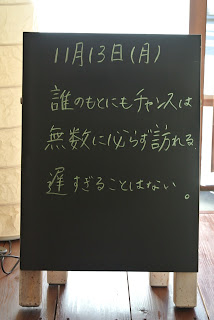 11月13日(月)
誰のもとにもチャンスは
無数に必らず訪れる。
遅すぎることはない。